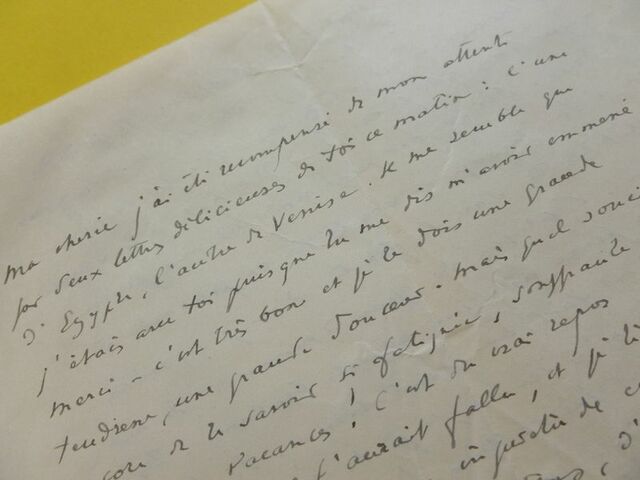 Ma chérie j'ai été recompensé de mon attente
par deux lettres délicieuses de toi ce matin : l'une
d'Egypte, l'autre de Venise. Il me semble que
j'étais avec toi puisque tu me dis m'avoir emmené
merci - c'est très bon et je te dois une grande
tendresse, une grande douceur. Mais quel souci
de te savoir si fatiguée, souffrante
vacances ! C'est du vrai repos
qu'il t'aurait fallu, et je
inquiète de